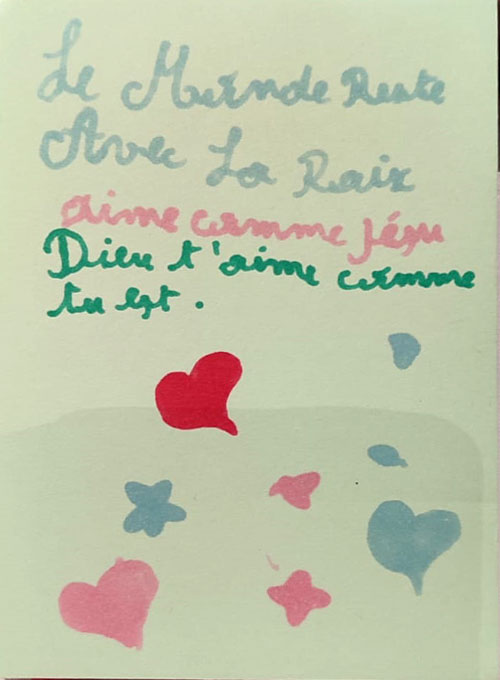 Le Monde Reste
Avec La Paix
aime comme Jésu
Dieu t'aime comme
tu est.